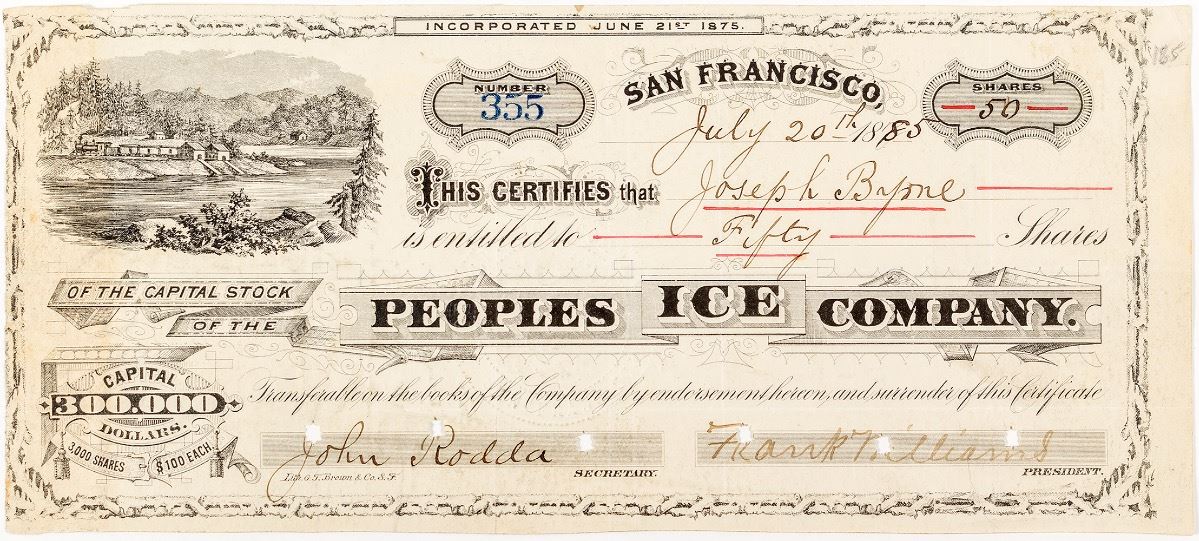 INCORPORATED JUNE 21ST 1875.
185
NUMBER
355
SAN FRANCISCO,
SHARES
50
July 20th 1885
THIS CERTIFIES that Joseph Byrne
is entitled to Fifty Shares
OF THE CAPITAL STOCK
OF THE
PEOPLES ICE COMPANY.
CAPITAL
300.000
DOLLARS.
3,000 SHARES $100 EACH
Transferable on the books of the Company by endorsement hereon, and surrender of this Certificate
John Rodda
SECRETARY.
Frank Williams
PRESIDENT.
Lith. G. T. Brown & Co. S. F.